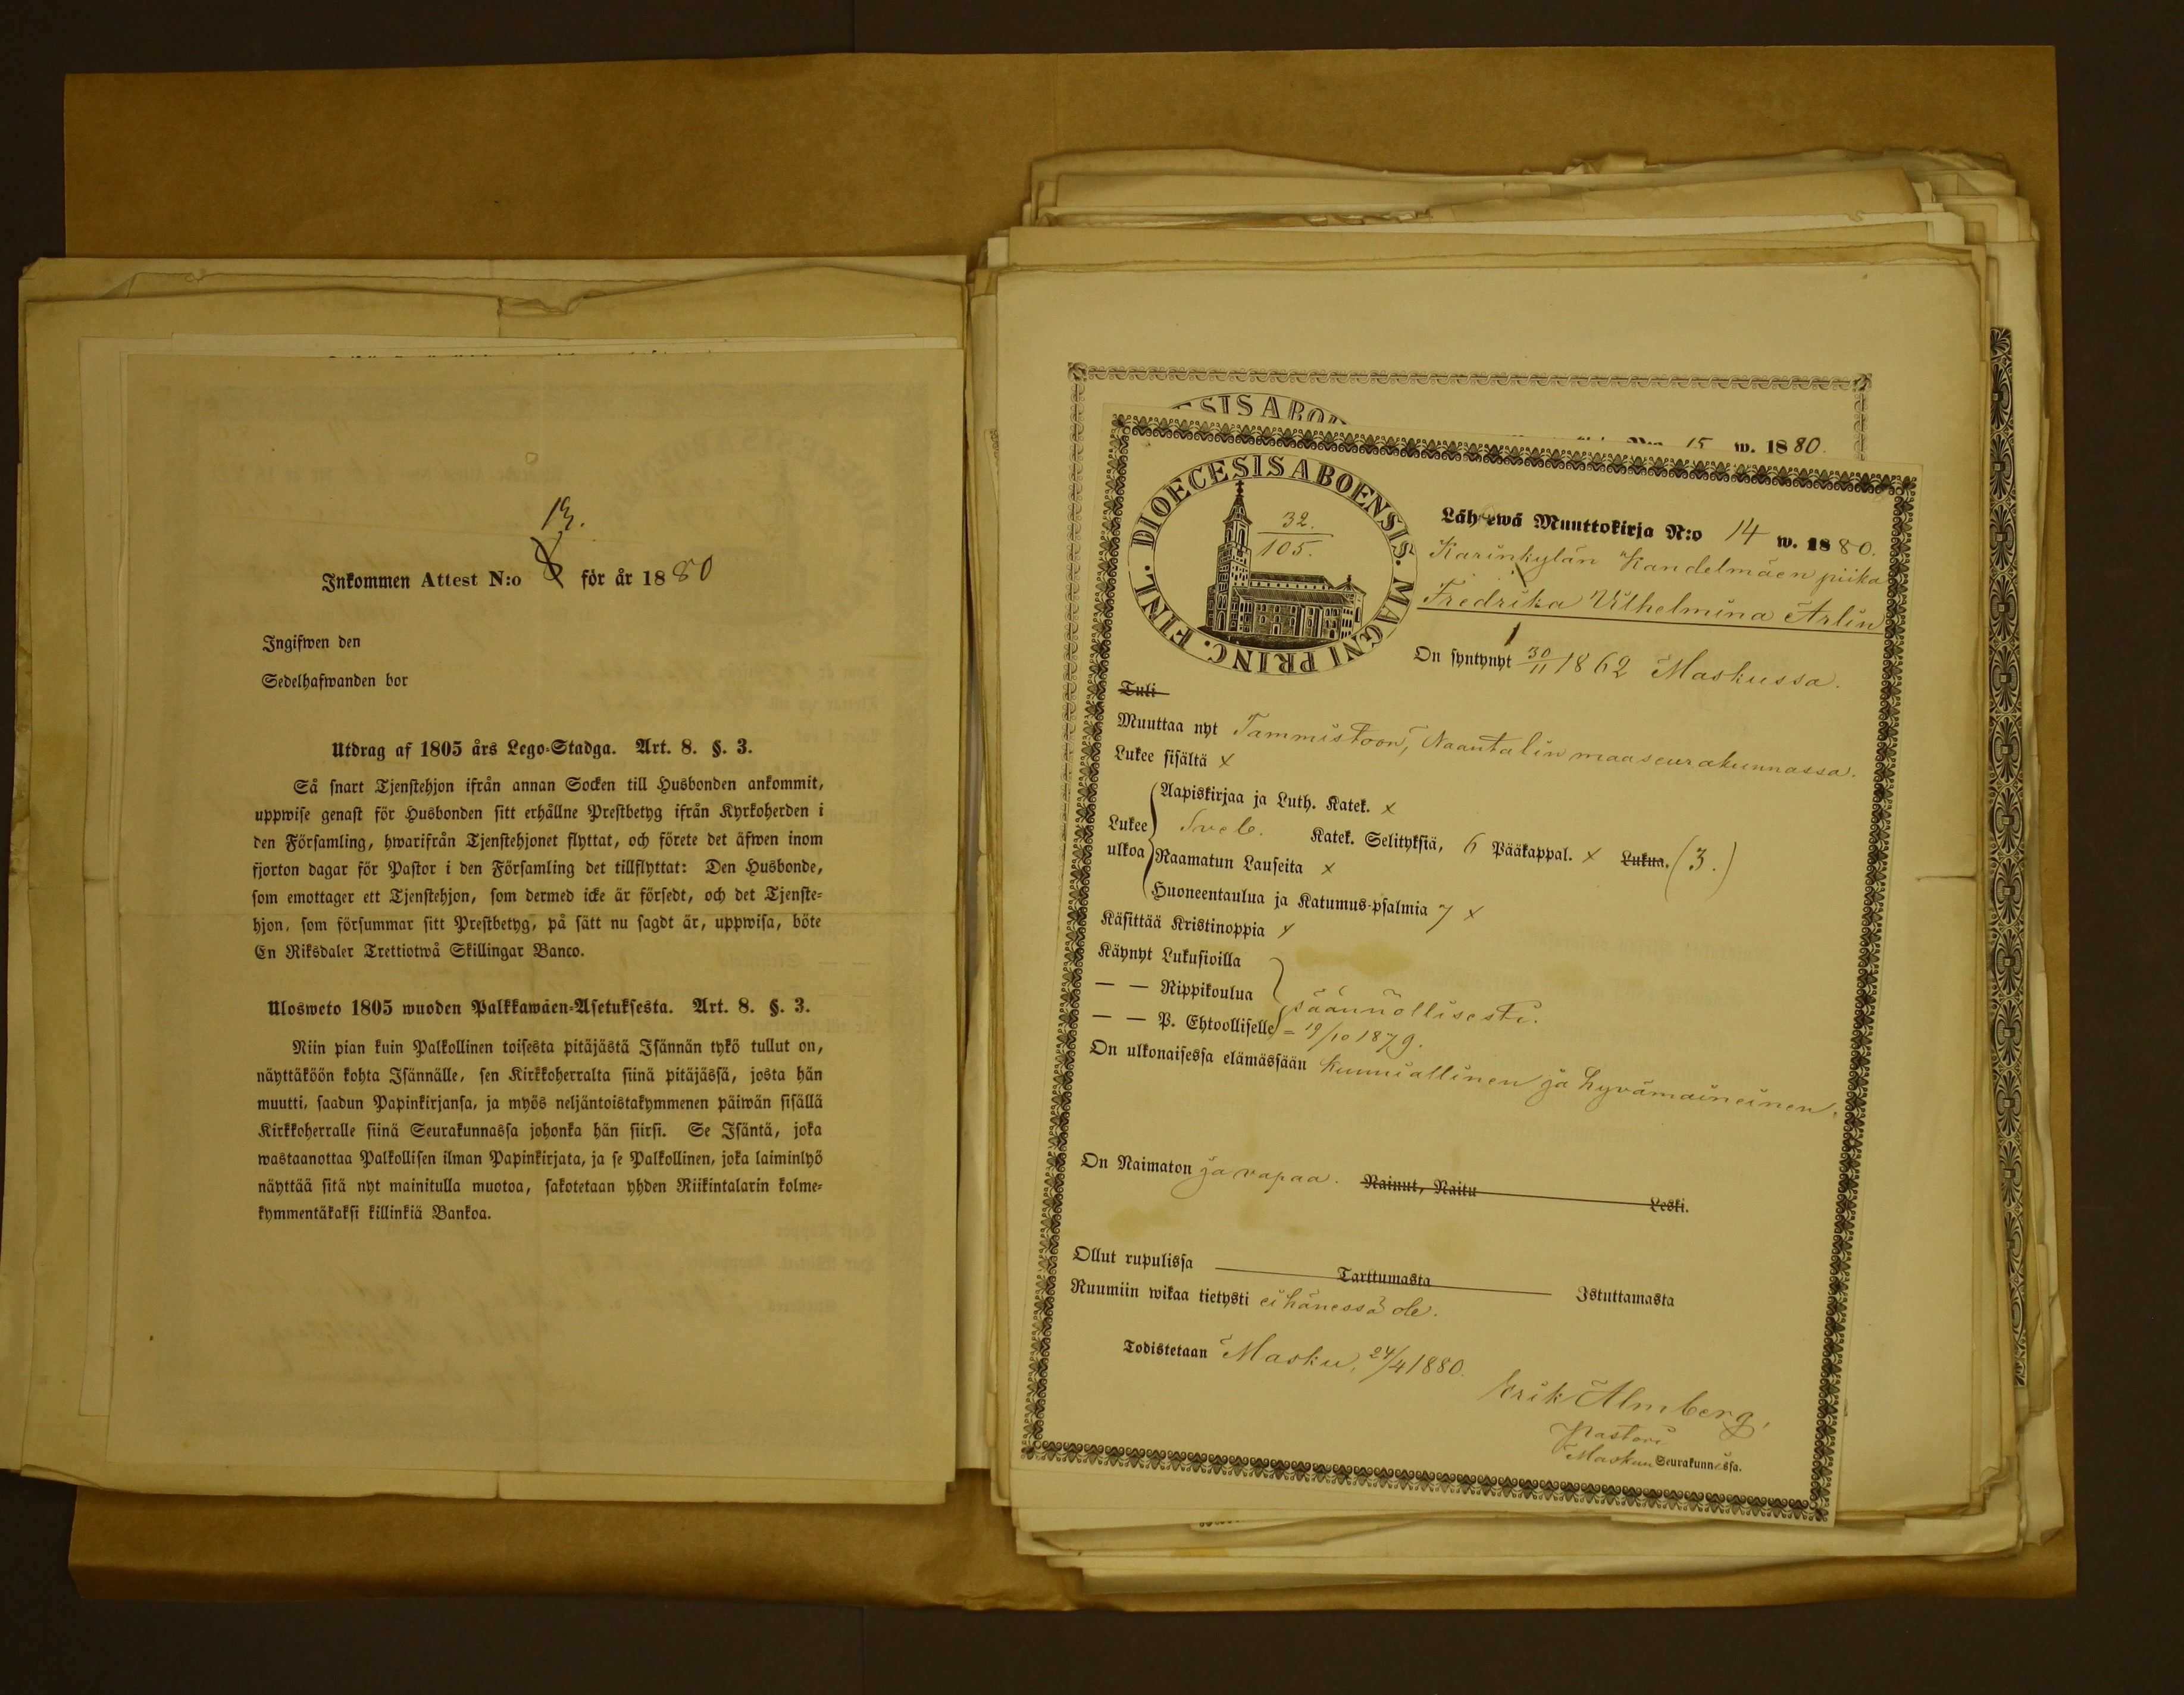 13.
Inkommen Attest N:o 8 för år 1880
Ingifwen den
Sedelhafwanden bor
Utdrag af 1805 års Lego-Stadga. Art. 8. §. 3.
Så snart Tjenstehjon ifrån annan Socken till Husbonden ankommit,
uppwise genast för Husbonden sitt erhållne Prestbetyg ifrån Kyrkoherden i
den Församling, hwarifrån Tjenstehjonet flyttat, och förete det äfwen inom
fjorton dagar för Pastor i den Församling det tillflyttat: Den Husbonde,
som emottager ett Tjenstehjon, som dermed icke är försedt, och det Tjenste-
hjon, som försummar sitt Prestbetyg, på sätt nu sagdt är, uppwisa, böte
En Riksdaler Trettiotwå Skillingar Banco.
Ulosweto 1805 wuoden Palkkawäen-Asetuksesta. Art. 8. §. 3.
Niin pian kuin Palkollinen toisesta pitäjästä Isännän tykö tullut on,
näyttäköön kohta Isännälle, sen Kirkkoherralta siinä pitäjässä, josta hän
muutti, saadun Papinkirjansa, ja myös neljäntoistakymmenen päiwän sisällä
Kirkkoherralle siinä Seurakunnassa johonka hän siirsi. Se Isäntä, joka
wastaanottaa Palkollisen ilman Papinkirjata, ja se Palkollinen, joka laiminlyö
näyttää sitä nyt mainitulla muotoa, sakotetaan yhden Riikintalarin kolme-
kymmentäkaksi killinkiä Bankoa.
15 w. 1880.
DIOECESIS ABOENSIS. MAGNI PRINC. FINL.
32.
105.
Lähtewä Muuttokirja N:o 14 w. 1880.
Karinkylän Kandelmäen piika
Fredrika Vilhelmina Arlin
On syntynyt 30/11 1862 Maskussa.
Tuli
Muuttaa nyt Tammistoon, Naantalin maaseurakunnassa.
Lukee sisältä x
Lukee ulkoa
Aapiskirjaa ja Luth. Katek. x
Sveb. Katek. Selityksiä, 6 Pääkappal. x Lukua. (3.)
Raamatun Lauseita x
Huoneentaulua ja Katumus-psalmia 7 x
Käsittää Kristinoppia x
Käynyt Lukusioilla
— — Rippikoulua
säännöllisesti.
— — P. Ehtoollisella = 19/10 1879.
On ulkonaisessa elämässään kunniallinen ja hyvämaineinen.
On Naimaton ja vapaa. Nainut, Naitu Leski.
Ollut rupulissa Tarttumasta Istuttamasta
Ruumiin wikaa tietysti ei hänessä ole.
Todistetaan Masku, 24/4 1880.
Erik Almberg,
Pastori
Maskun Seurakunnassa.